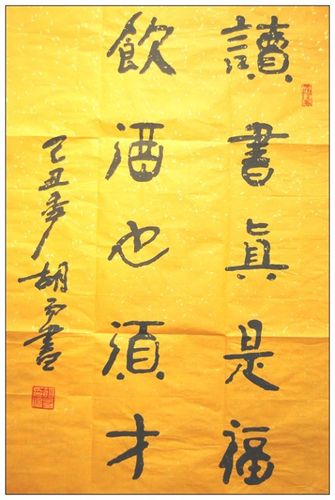 讀書眞是福
飲酒也須才
己丑年 胡書